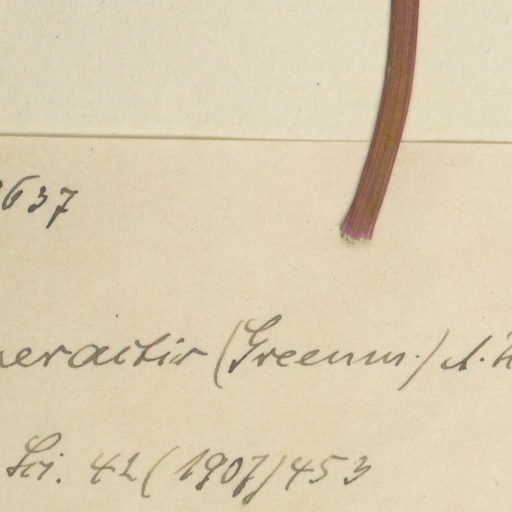 637
(Greenm.)
Sci. 42 (1907) 453